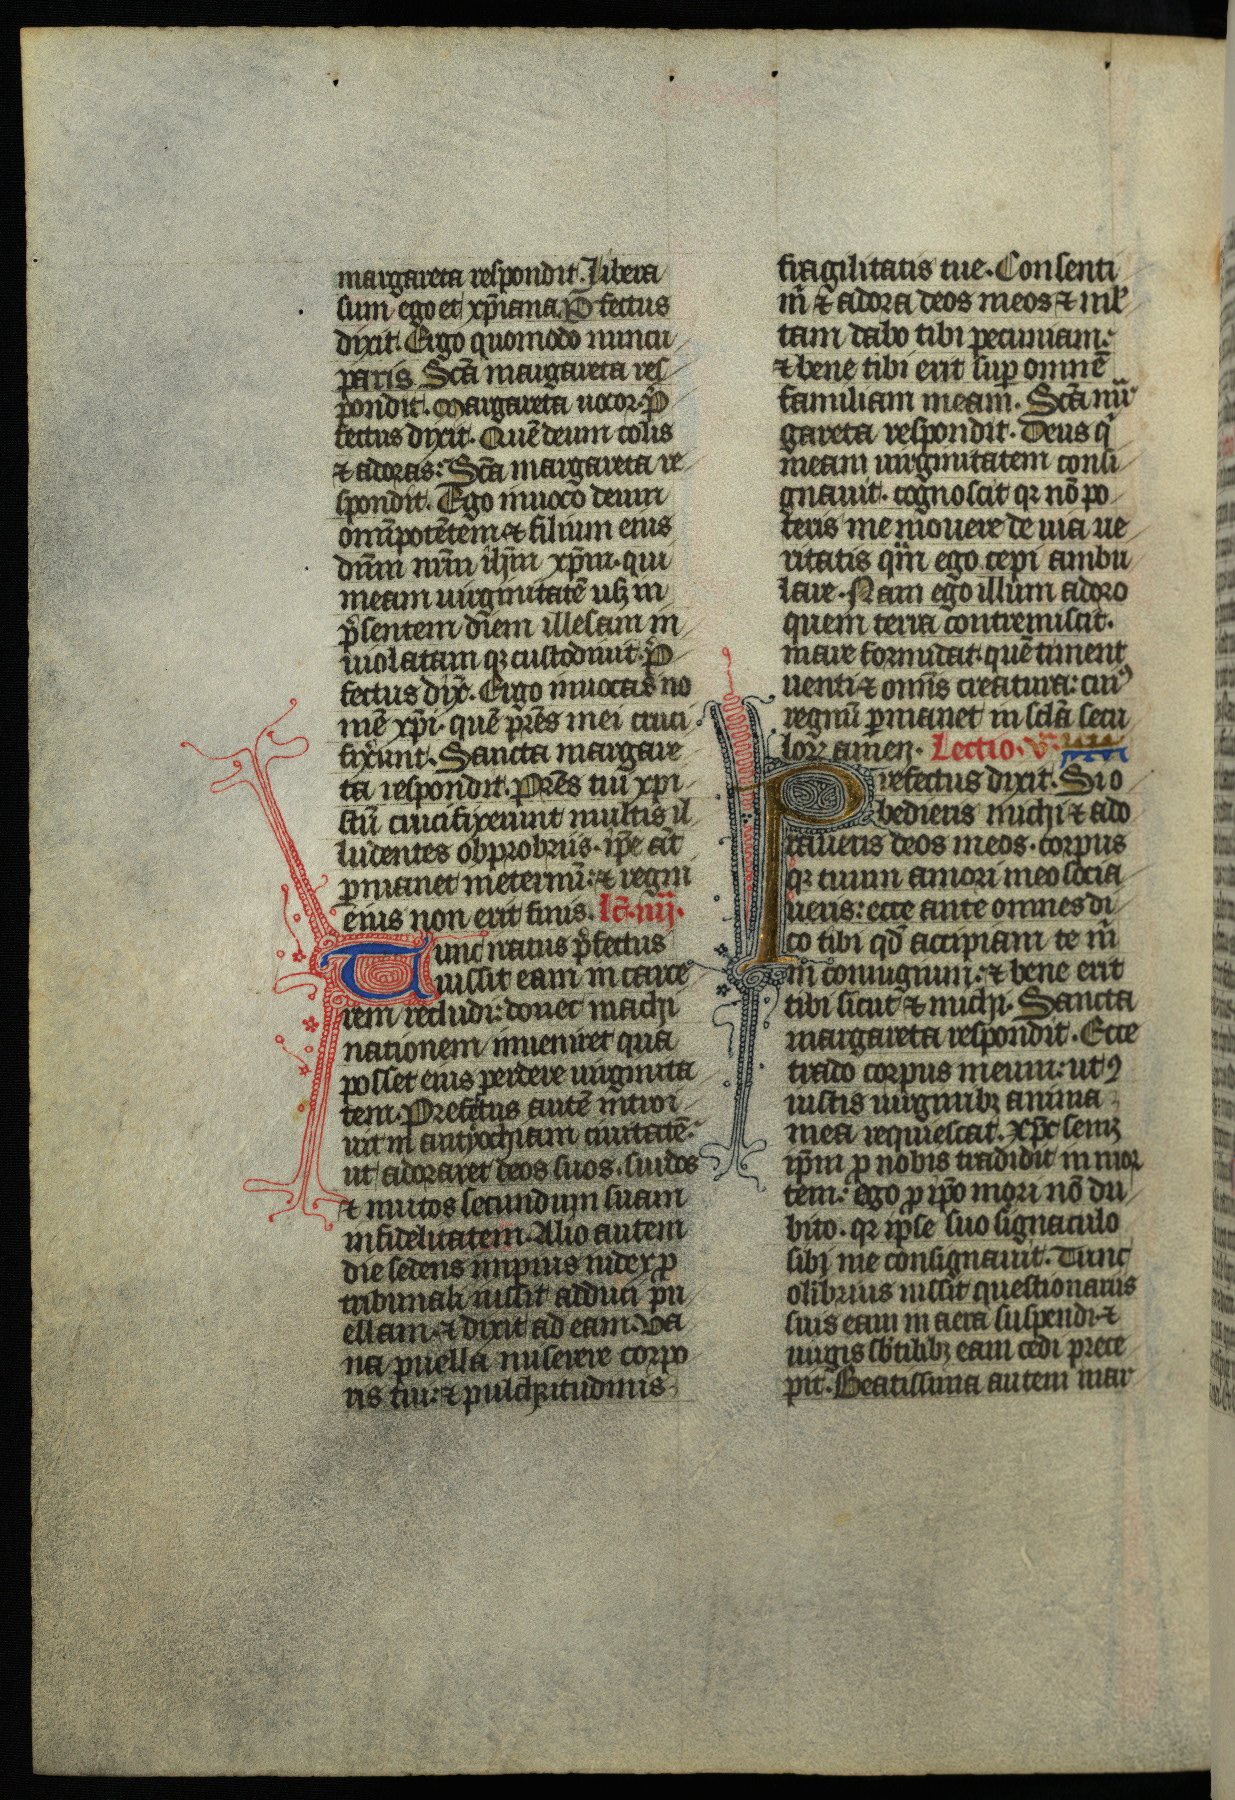 margareta respondit. Libera
sum ego et xp̄iana. P̄fectus
dixit. Ergo quomodo nuncu
paris. Sc̄a margareta res
pondit. Margareta uocor. P̄
fectus dixit. Quē deum colis
⁊ adoras: Sc̄a margareta re
spondit. Ego inuoco deum
omīpotētem ⁊ filium eius
dn̄m nr̄m ih̄m xp̄m. qui
meam uirginitatē usꝫ in
p̄sentem diem illesam in
uiolatam qꝫ custodiuit. P̄
fectus dix̄. Ergo inuocas no
mē xp̄i. quē pr̄es mei cruci
fixerunt. Sancta margare
ta respondit. Pr̄es tui xpi
stū crucifixerunt multis il
ludentes obprobriis. ip̄e aūt
ꝑmanet ineternū: ⁊ regni
eius non erit finis. Lc̄. iiij.
Tunc iratus p̄fectus
iussit eam in carce
rem recludi: donec machi
nationem inueniret qua
posset eius perdere uirginita
tem. Prefectus autē introi
uit in antyochiam ciuitatē:
ut adoraret deos suos. surdos
⁊ mutos secundum suam
infidelitatem. Alio autem
die sedens impius iudex ꝓ
tribunali iussit adduci pu
ellam. ⁊ dixit ad eam. Ua
na puella miserere corpo
ris tui: ⁊ pulchritudinis
fragilitatis tue. Consenti
m̄ ⁊ adora deos meos ⁊ ml̄
tam dabo tibi pecuniam:
⁊ bene tibi erit suꝑ omnē
familiam meam. Sc̄a mar
gareta respondit. Deus q̄
meam uirginitatem consi
gnauit. cognoscit qꝛ nō po
teris me mouere de uia ue
ritatis qm̄ ego cepi ambu
lare. Nam ego illum adoro
quem terra contremiscit.
mare formidat. quē timent
uenti ⁊ omīs creatura: cuiꝰ
regnū ꝑmanet in scl̄a secu
lorꝝ amen. Lectio. v.
Prefectus dixit. Si o
bedieris michi ⁊ ado
raueris deos meos. corpus
qꝫ tuum amori meo socia
ueris: ecce ante omnes di
co tibi qd̄ accipiam te m̄
in coniugium: ⁊ bene erit
tibi sicut ⁊ michi. Sancta
margareta respondit. Ecce
trado corpus meum: ut ꝯ
iustis uirginibꝫ anima
mea requiescat. Xp̄c semꝫ
ip̄m ꝓ nobis tradidit in mor
tem: ego ꝓ ip̄o mori nō du
bito. qꝛ ipse suo signaculo
sibi me consignauit. Tunc
olibrius iussit questionariis
suis eam in aera suspendi. ⁊
uirgis sb̄tilibꝫ eam cedi prece
pit. Beatissima autem mar